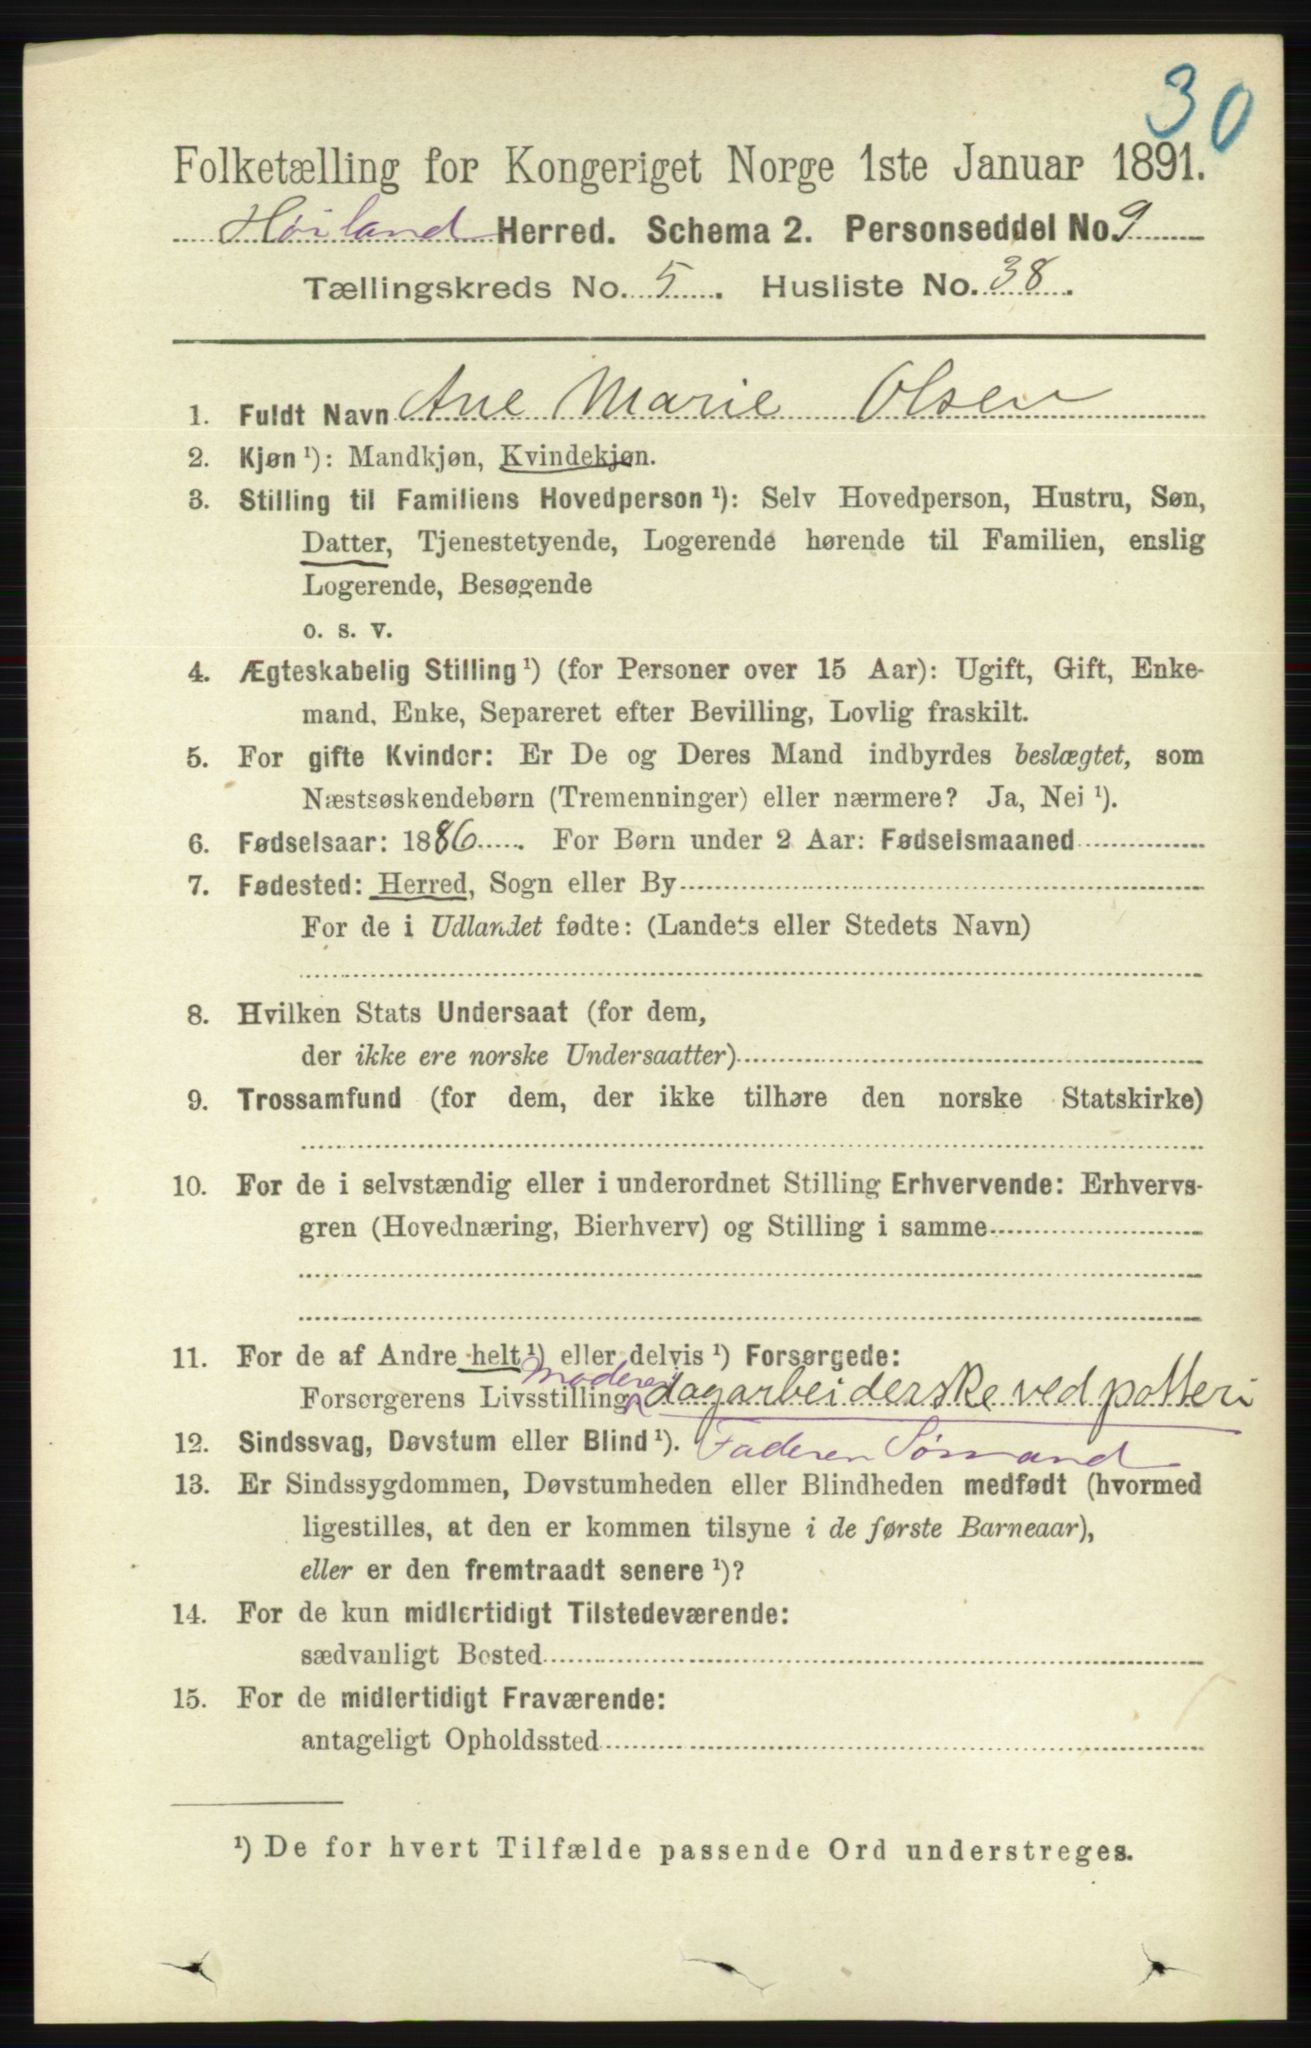 30
Folketælling for Kongeriget Norge 1ste Januar 1891.
Høiland Herred. Schema 2. Personseddel No. 9
Tællingskreds No. 5. Husliste No. 38.
1. Fuldt Navn Ane Marie Olsen
2. Kjøn ¹): Mandkjøn, Kvindekjøn.
3. Stilling til Familiens Hovedperson ¹): Selv Hovedperson, Hustru, Søn,
Datter, Tjenestetyende, Logerende hørende til Familien, enslig
Logerende, Besøgende
o. s. v.
4. Ægteskabelig Stilling ¹) (for Personer over 15 Aar): Ugift, Gift, Enke-
mand, Enke, Separeret efter Bevilling, Lovlig fraskilt.
5. For gifte Kvinder: Er De og Deres Mand indbyrdes beslægtet, som
Næstsøskendebørn (Tremenninger) eller nærmere? Ja, Nei ¹).
6. Fødselsaar: 1886. For Børn under 2 Aar: Fødselsmaaned
7. Fødested: Herred, Sogn eller By
For de i Udlandet fødte: (Landets eller Stedets Navn)
8. Hvilken Stats Undersaat (for dem,
der ikke ere norske Undersaatter)
9. Trossamfund (for dem, der ikke tilhøre den norske Statskirke)
10. For de i selvstændig eller i underordnet Stilling Erhvervende: Erhvervs-
gren (Hovednæring, Bierhverv) og Stilling i samme
11. For de af Andre helt ¹) eller delvis ¹) Forsørgede:
Moderen
Forsørgerens Livsstilling dagarbeiderske ved potteri
12. Sindssvag, Døvstum eller Blind ¹). Faderen Sømand
13. Er Sindssygdommen, Døvstumheden eller Blindheden medfødt (hvormed
ligestilles, at den er kommen tilsyne i de første Barneaar),
eller er den fremtraadt senere ¹)?
14. For de kun midlertidigt Tilstedeværende:
sædvanligt Bosted
15. For de midlertidigt Fraværende:
antageligt Opholdssted
¹) De for hvert Tilfælde passende Ord understreges.